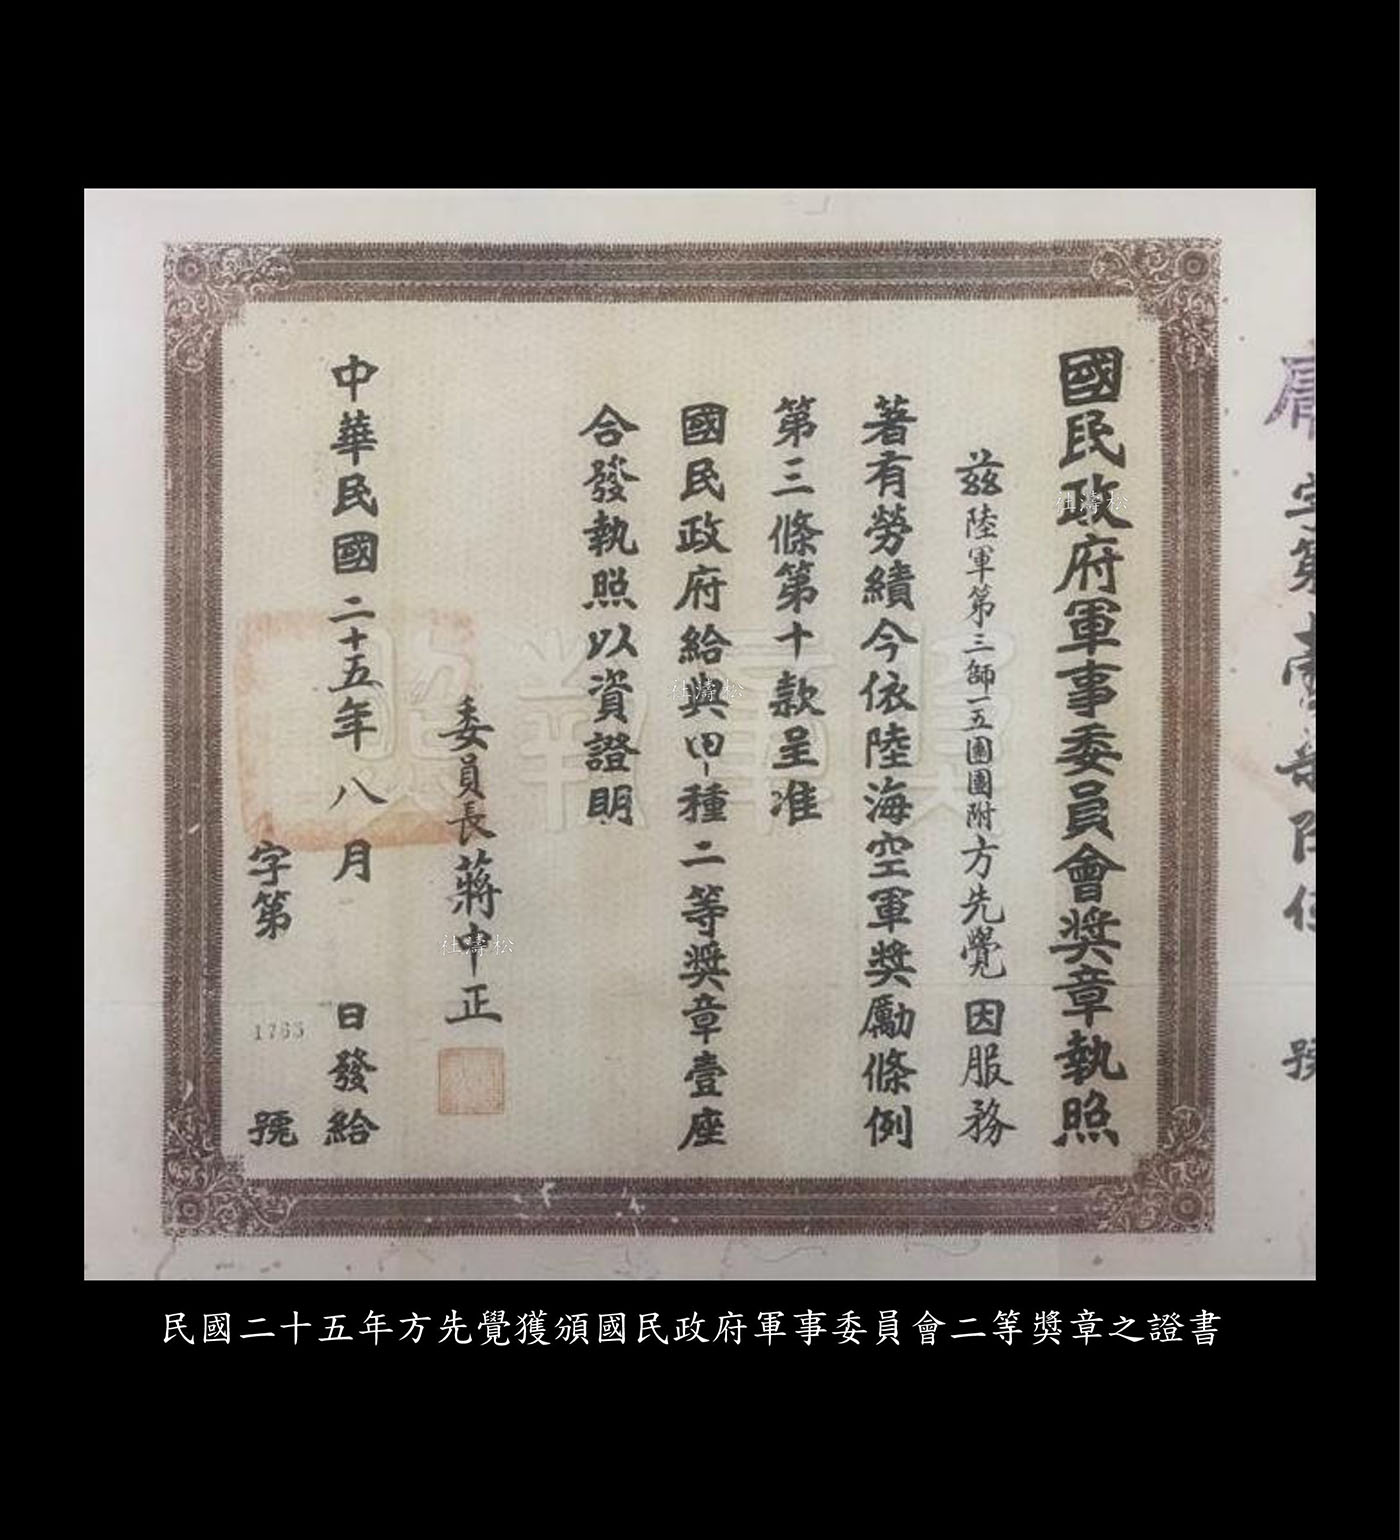 國民政府軍事委員會獎章執照
茲陸軍第三師一五團團附方先覺因服務
著有勞績今依陸海空軍獎勵條例
第三條第十款呈准
國民政府給與甲種二等獎章壹座
合發執照以資證明
委員長蔣中正
中華民國二十五年八月 日發給
字第 1765 號
字第壹 號
獎章執照
社濤松
社濤松
社濤松
民國二十五年方先覺獲頒國民政府軍事委員會二等獎章之證書